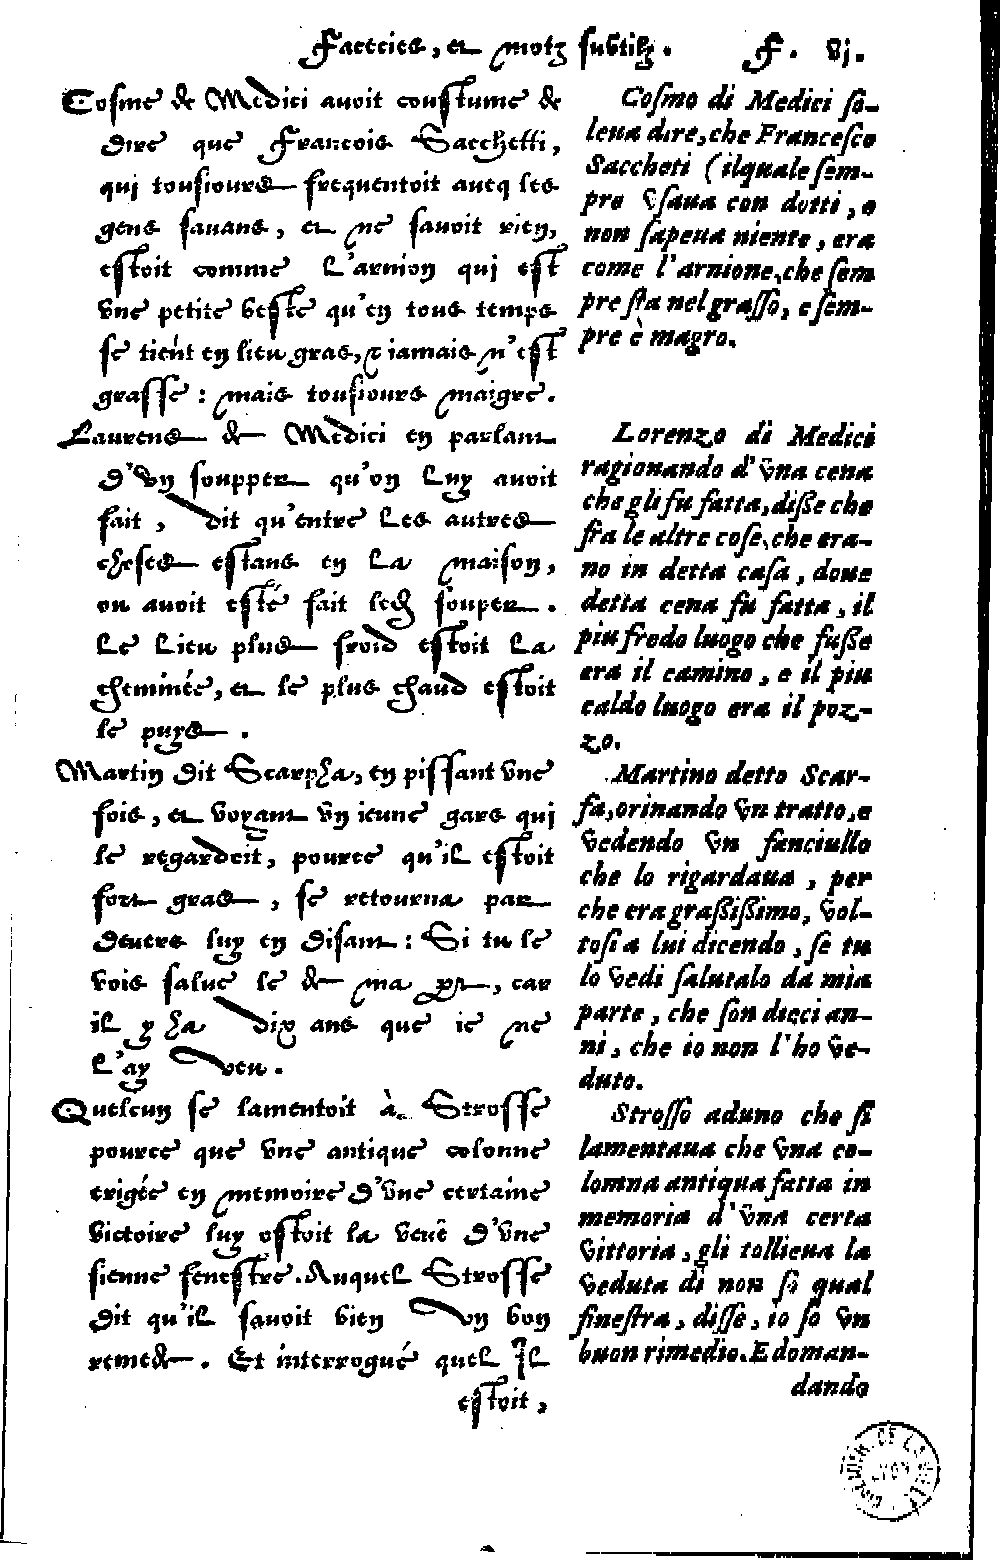 Facecies, et motz subtilz. F. vj.
Cosme de Medici avoit coustume de
dire que Francois Sacchetti,
qui tousiours frequentoit avecq les
gens savans, et ne savoit rien,
estoit comme L'arnion qui est
vne petite beste qu'en tous temps
se tient en lieu gras, & iamais n'est
grasse : mais tousiours maigre.
Laurens de Medici en parlant
d'vn soupper qu'on Luy avoit
fait, dit qu'entre Les autres
choses estans en La maison,
ou avoit esté fait led souper.
Le Lieu plus froid estoit La
cheminée, et le plus chaud estoit
le puys.
Martin dit Scarpha, en pissant vne
fois, et voyant vn ieune gars qui
le regardoit, pource qu'il estoit
fort gras, se retourna par
devers luy en disant : Si tu le
vois salue le de ma part, car
il y ha dix ans que ie ne
L'ay veu.
Quelcun se lamentoit à Strosse
pource que vne antique colonne
erigée en memoire d'vne certaine
victoire luy ostoit la veuë d'vne
sienne fenestre. Auquel Strosse
dit qu'il savoit bien vn bon
remede. Et interrogué quel Il
estoit,
Cosmo di Medici so-
leua dire, che Francesco
Saccheti (ilquale sem-
pre vsaua con dotti, e
non sapeua niente, era
come l'arnione, che sem
pre sta nel grasso, e sem-
pre è magro.
Lorenzo di Medici
ragionando d'vna cena
che gli fu fatta, disse che
fra le altre cose, che era-
no in detta casa, doue
detta cena fu fatta, il
piu fredo luogo che fusse
era il camino, e il piu
caldo luogo era il poz-
zo.
Martino detto Scar-
fa, orinando vn tratto, e
vedendo vn fanciullo
che lo rigardaua, per
che era grassissimo, vol-
tosi a lui dicendo, se tu
lo vedi salutalo da mia
parte, che son dieci an-
ni, che io non l'ho ve-
duto.
Strosso aduno che si
lamentaua che vna co-
lomna antiqua fatta in
memoria d'vna certa
vittoria, gli tolliena la
veduta di non so qual
finestra, disse, io so vn
buon rimedio. E doman-
dando